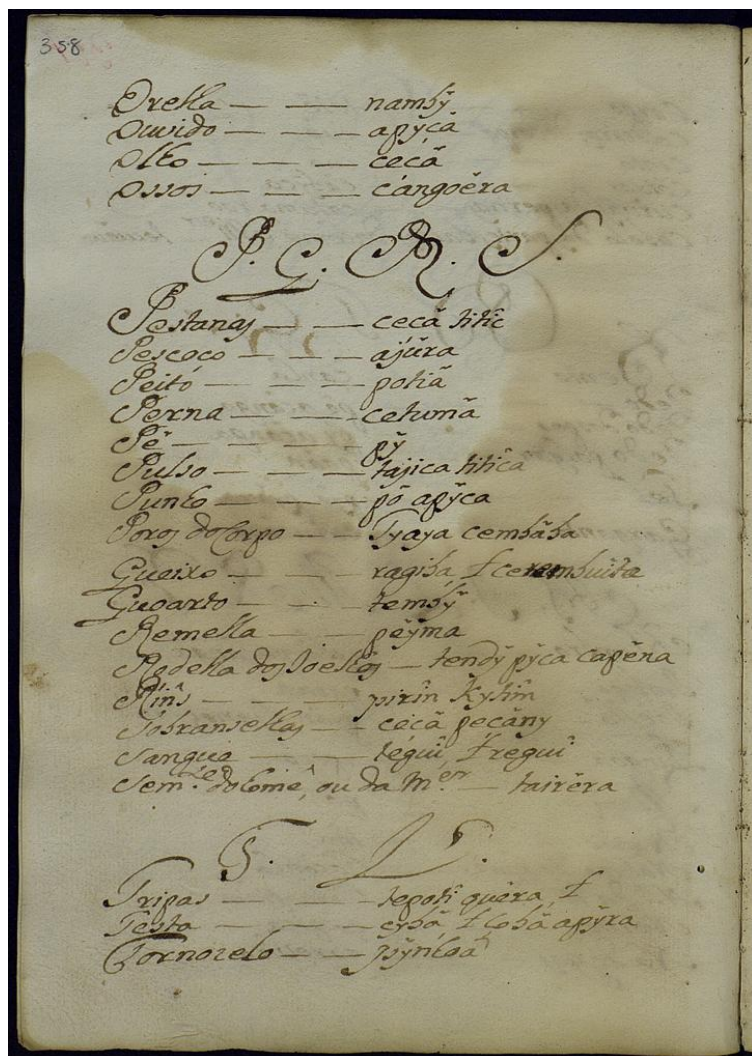 358
Orelha — — namby᷉
Ouvido — — — apỹcã
Olho — — — cecã
Ossos — — — cangoẽra
P. Q. R. S.
Pestanas — — cecã titîc
Pescoco — — — ajũra
Peito — — — potiã
Perna — — — cetumã
Pẽ — — — pỹ
Pulso — — — tajica titîca
Punho — — — põ apỹca
Poros do Corpo — — Tyaya cembãba
Queixo — — ragiba, ł ceremhuîta
Quoarto — — — tembỹ
Remella — — pẽỹma
Rodella dos Joelhos — tendỹ pỹca capẽna
Rins — — — pirîn kytîn
Sobranselhas — — cecã pecãny
Sangue — — — teguî, ł reguî
Sem.te do home, ou da m.er — tairẽra
T. V.
Tripas — — — tepoti quẽra, ł
Testa — — — cybã, ł cobã apỹra
Tornozelo — — pỹnhoã